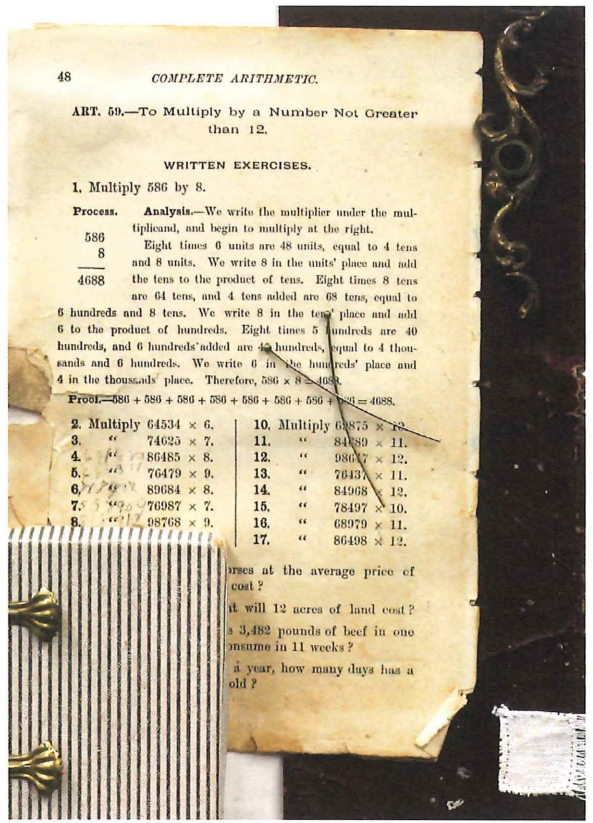 48 COMPLETE ARITHMETIC.
ART. 59.—To Multiply by a Number Not Greater
than 12.
WRITTEN EXERCISES.
1. Multiply 586 by 8.
Process. Analysis.—We write the multiplier under the mul-
tiplicand, and begin to multiply at the right.
586
Eight times 6 units are 48 units, equal to 4 tens
8
and 8 units. We write 8 in the units' place and add
4688
the tens to the product of tens. Eight times 8 tens
are 64 tens, and 4 tens added are 68 tens, equal to
6 hundreds and 8 tens. We write 8 in the tens' place and add
6 to the product of hundreds. Eight times 5 hundreds are 40
hundreds, and 6 hundreds added are hundreds, equal to 4 thou-
sands and 6 hundreds. We write 6 in the hundreds' place and
4 in the thousands' place. Therefore, 586 × 8 = 4688.
Proof.—586 + 586 + 586 + 586 + 586 + 586 + 586 + 586 = 4688.
2. Multiply 64534 × 6.
3. " 74625 × 7.
4. " 86485 × 8.
5. " 76479 × 9.
6. 89684 × 8.
7. " 76987 × 7.
8. 98768 × 9.
10. Multiply × 12.
11. " × 11.
12. " × 12.
13. " 76437 × 11.
14. " 84968 × 12.
15. " 78497 × 10.
16. " 68979 × 11.
17. " 86498 × 12.
at the average price of
cost?
will 12 acres of land cost?
3,482 pounds of beef in one
in 11 weeks?
a year, how many days has a
old?